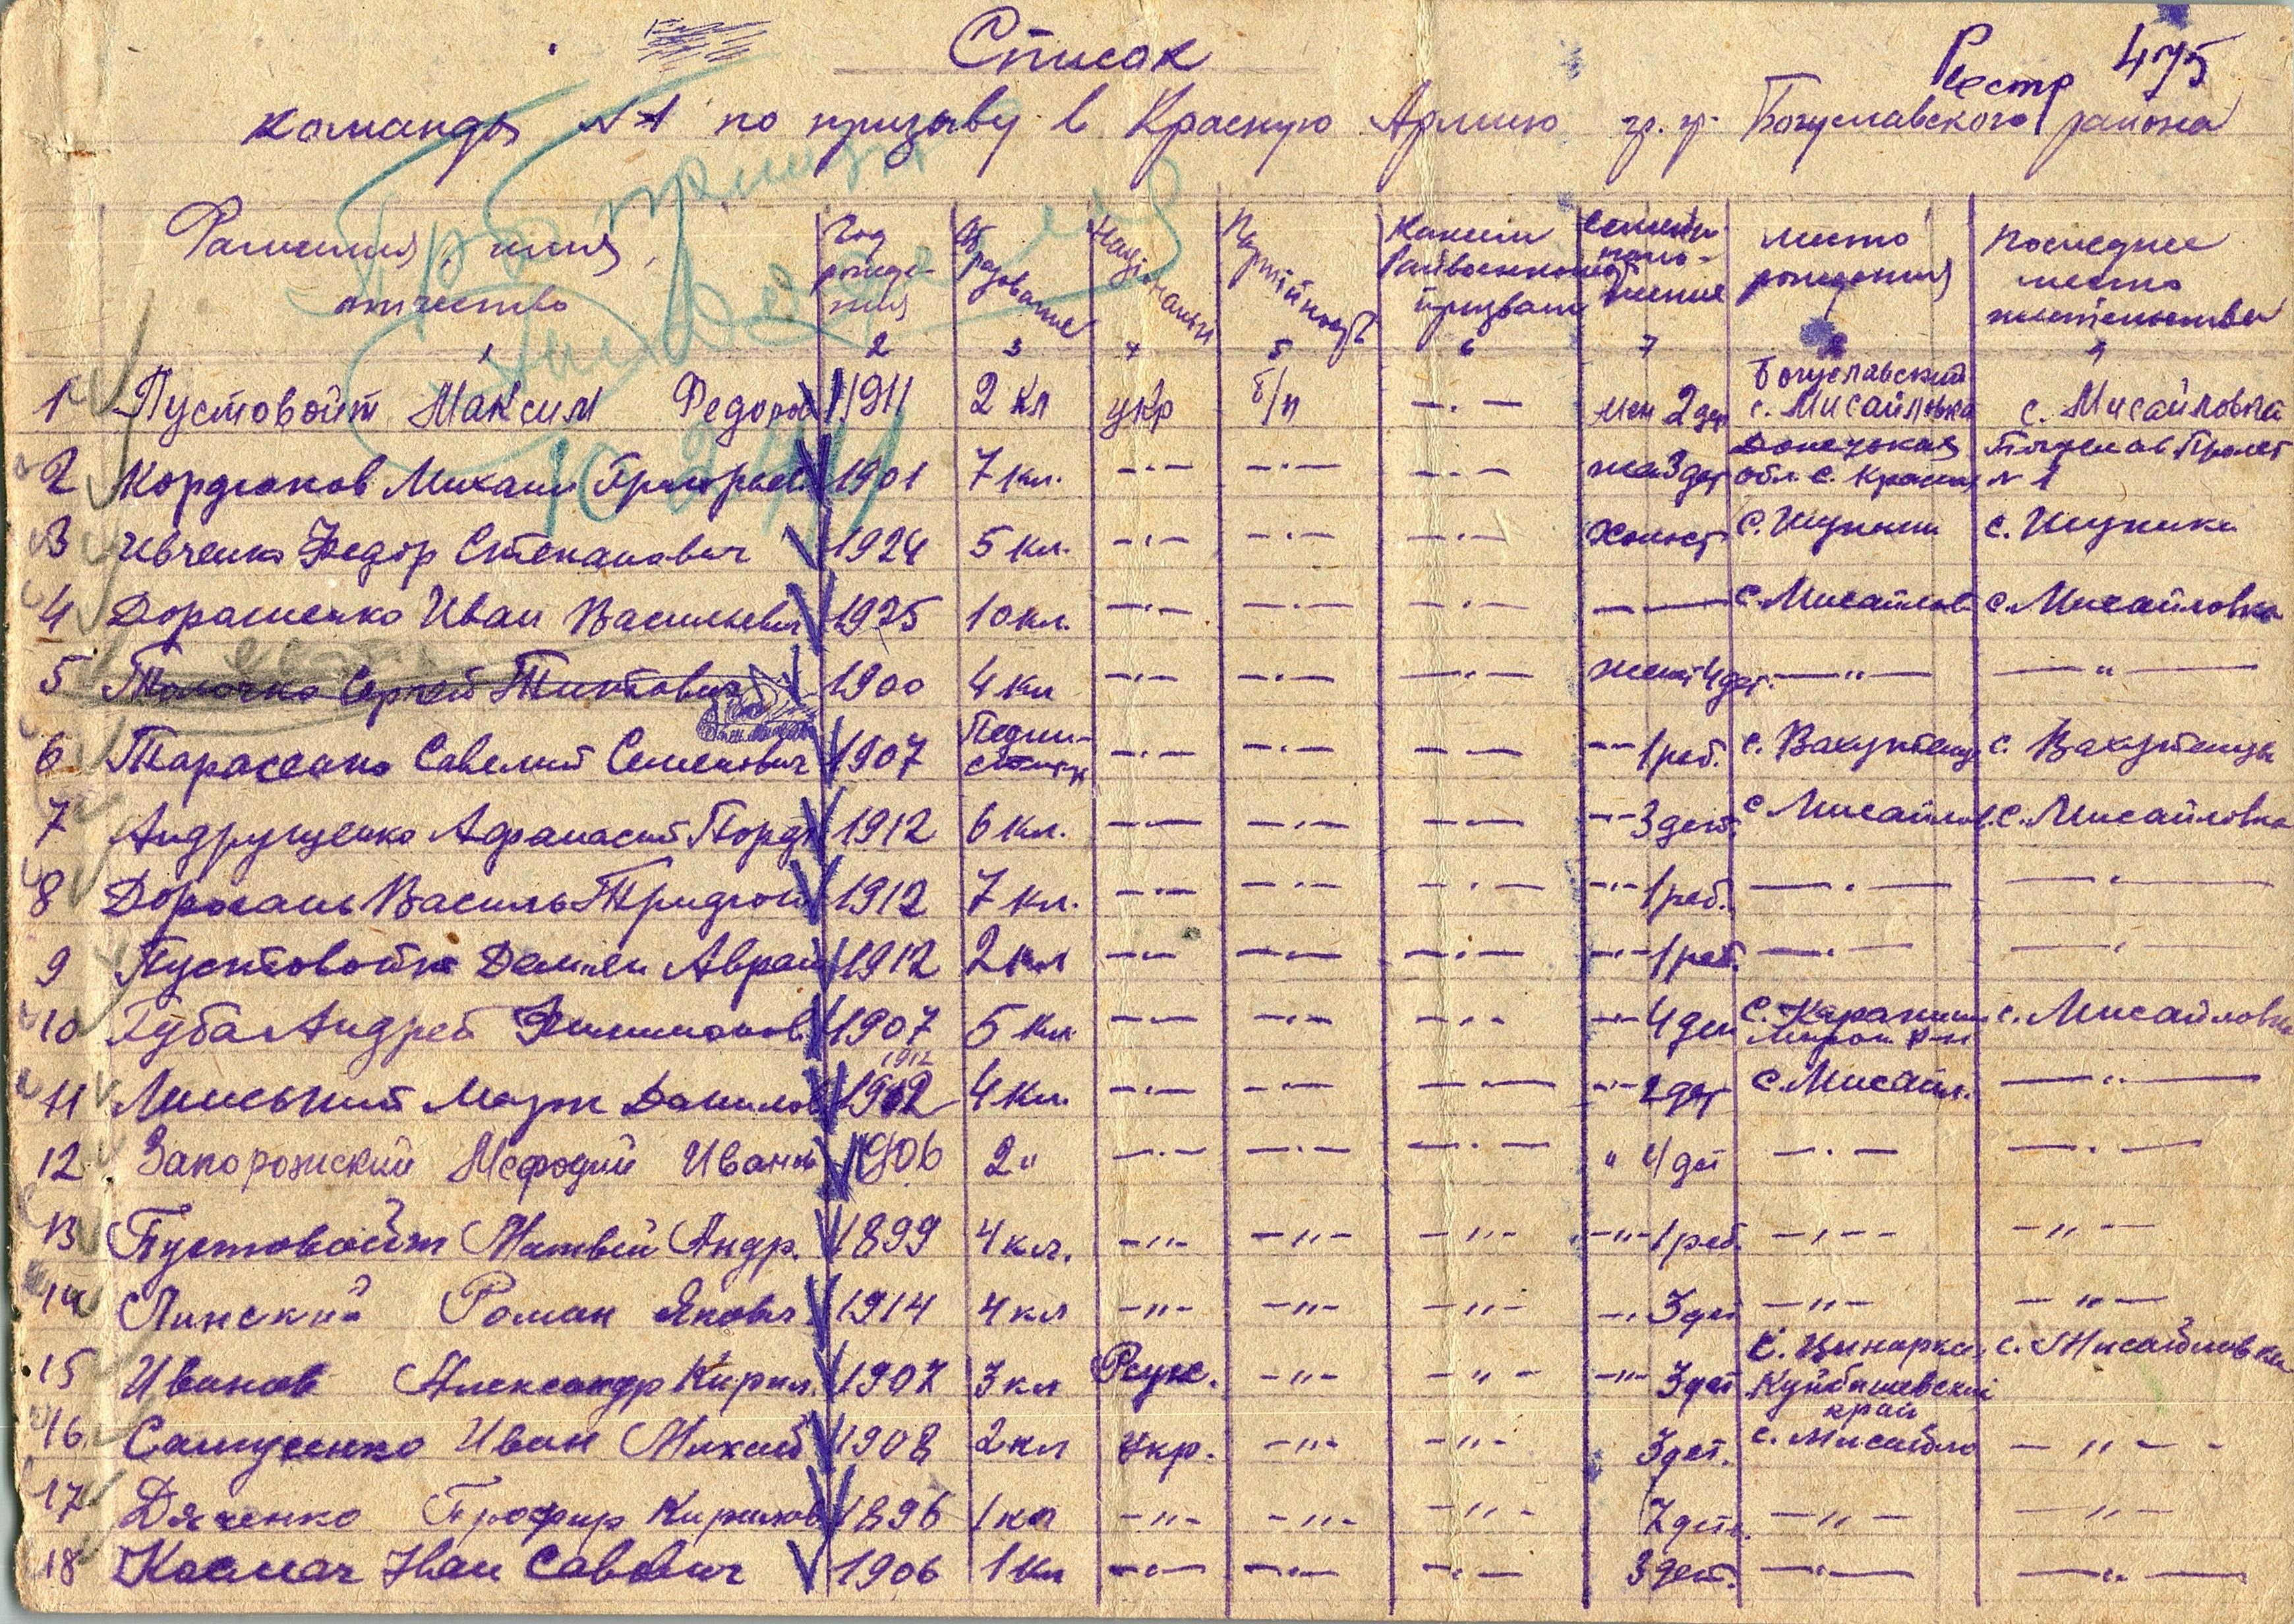 Список
Реестр 475
команды №1 по призыву в Красную Армию гр. гр. Богуславского района
Фамилия, имя, отчество | Год рождения | Образование | Национальн | Партийность | Каким Райвоенкомат призван | Семейн. положение | место рождения | последнее место жительства
1 2 3 4 5 6 7 8 9
1 Пустовойт Максим Федоров 1911 2 кл укр б/п —·— жен 2 дет Богуславский с. Мисайловка с. Мисайловка
2 Кордюков Михаил Григорьев 1901 7 кл. —·— —·— —·— 3 дет Донецкая обл. с. №1
3 Ивченко Федор Степанович 1924 5 кл. —·— —·— —·— холост с. Шупики с. Шупики
4 Дорошенко Иван Васильевич 1925 10 кл. —·— —·— —·— —·— с. Мисайлов с. Мисайловка
5 Толочко Сергей Титович 1900 4 кл —·— —·— —·— женат 4 дет. —"— —"—
6 Тарасенко Савелий Семенович 1907 —·— —·— —·— —"— 1 реб. с. Вахутенцы с. Вахутенцы
7 Андрущенко Афанасий Горд 1912 6 кл. —·— —·— —·— —"— 3 дет. с Мисайлов. с. Мисайловка
8 Василь 1912 7 кл. —·— —·— —·— —"— 1 реб. —·— —·—
9 Пустовойт Демьян Аврам 1912 2 кл —·— —·— —·— —"— 1 реб. —·— —·—
10 Губа Андрей Филимонов. 1907 5 кл —·— —·— —·— —"— 4 дет с. Мирон р-н с. Мисайловка
1912
11 Данилов 1902 4 кл. —·— —·— —·— —"— 2 дет с. Мисайл. —"—
12 Запорожский Мефодий Иванов 1906 2 " —·— —·— —·— " 4 дет —·— —·—
13 Пустовойт Матвей Андр. 1899 4 кл. —"— —"— —"— —"— 1 реб. —"— —"—
14 Линский Роман Яковл. 1914 4 кл —"— —"— —"— —"— 3 дет —"— —"—
15 Иванов Александр Кирил. 1907 3 кл Рсук. —"— —"— —"— 3 дет с. Куйбышевский край с. Мисайловка
16 Самусенко Иван Михайл 1908 2 кл укр. —"— —"— 3 дет. с. Мисайло —"—
17 Дяченко Кирилов 1896 1 кл —"— —"— —"— 7 дет. —"— —"—
18 Космач Иван Савович 1906 1 кл —·— —·— —·— 3 дет. —·— —"—